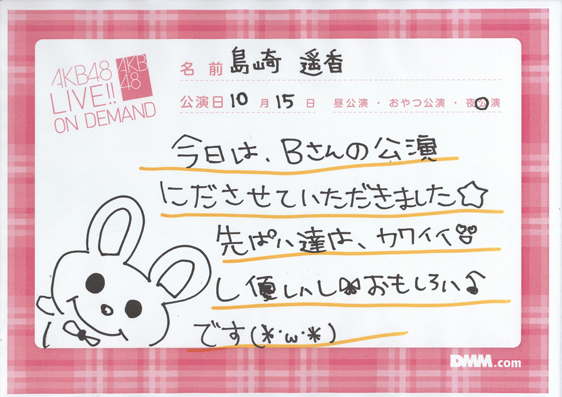 AKB48
LIVE!!
ON DEMAND
AKB
48
名 前 島崎 遥香
公演日 10 月 15 日 昼公演・おやつ公演・夜公演
今日は、Bさんの公演
にださせていただきました☆
先ぱい達は、カワイイ
し優しいしおもしろい♪
です(*･ω･*)
DMM.com